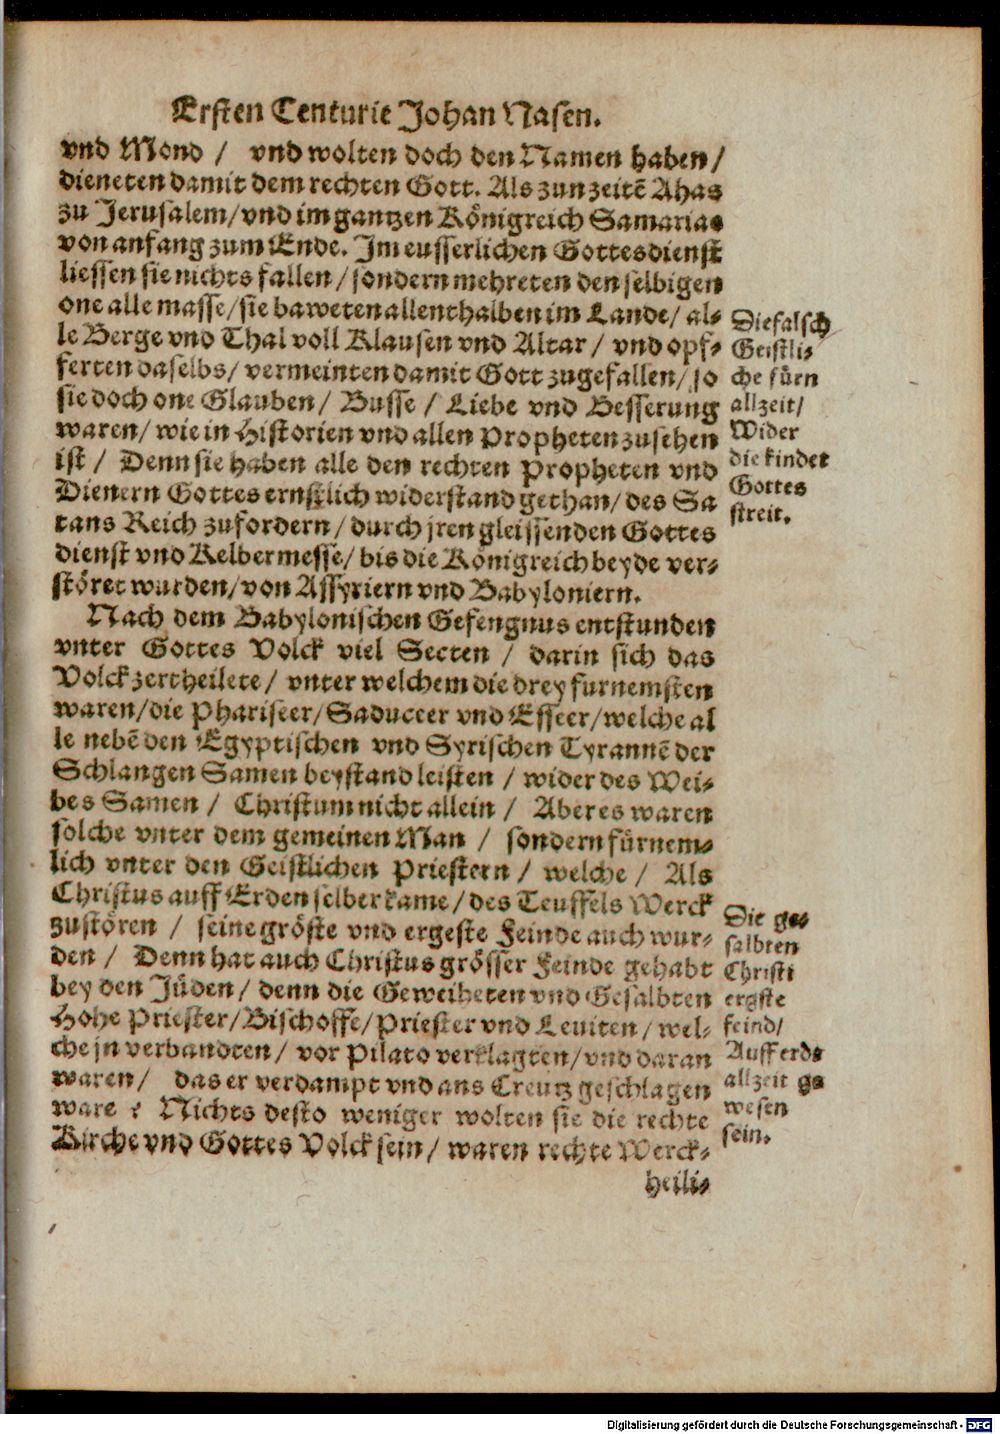 Ersten Centurie Johan Nasen.
vnd Mond / vnd wolten doch den Namen haben /
dieneten damit dem rechten Gott. Als zun zeitẽ Ahas
zu Jerusalem / vnd im gantzen Königreich Samarias
von anfang zum Ende. Im eusserlichen Gottesdienst
liessen sie nichts fallen / sondern mehreten den selbigen
one alle masse / sie baweten allenthalben im Lande / al-
le Berge vnd Thal voll Klausen vnd Altar / vnd opf-
ferten daselbs / vermeinten damit Gott zugefallen / so
sie doch one Glauben / Busse / Liebe vnd Besserung
waren / wie in Historien vnd allen Propheten zusehen
ist / Denn sie haben alle den rechten Propheten vnd
Dienern Gottes ernstlich widerstand gethan / des Sa
tans Reich zufordern / durch jren gleissenden Gottes
dienst vnd Kelbermesse / bis die Königreich beyde ver-
störet wurden / von Assyriern vnd Babyloniern.
Die falsch
Geistli-
che fürn
allzeit /
Wider
die kinder
Gottes
streit.
Nach dem Babylonischen Gefengnus entstunden
vnter Gottes Volck viel Secten / darin sich das
Volck zertheilete / vnter welchem die drey furnemsten
waren / die Phariseer / Saduceer vnd Esseer / welche al
le nebẽ den Egyptischen vnd Syrischen Tyrannẽ der
Schlangen Samen beystand leisten / wider des Wei-
bes Samen / Christum nicht allein / Aber es waren
solche vnter dem gemeinen Man / sondern fürnem-
lich vnter den Geistlichen Priestern / welche / Als
Christus auff Erden selber kame / des Teuffels Werck
zustören / seine gröste vnd ergeste Feinde auch wur-
den / Denn hat auch Christus grösser Feinde gehabt
bey den Jüden / denn die Geweiheten vnd Gesalbten
Hohe Priester / Bischoffe / Priester vnd Leuiten / wel-
che jn verbandten / vor Pilato verklagten / vnd daran
waren / das er verdampt vnd ans Creutz geschlagen
ware ? Nichts desto weniger wolten sie die rechte
Kirche vnd Gottes Volck sein / waren rechte Werck-
Die ge-
salbten
Christi
ergste
feind /
Auff erdẽ
allzeit ge
wesen
sein.
heili-
Digitalisierung gefördert durch die Deutsche Forschungsgemeinschaft - DFG